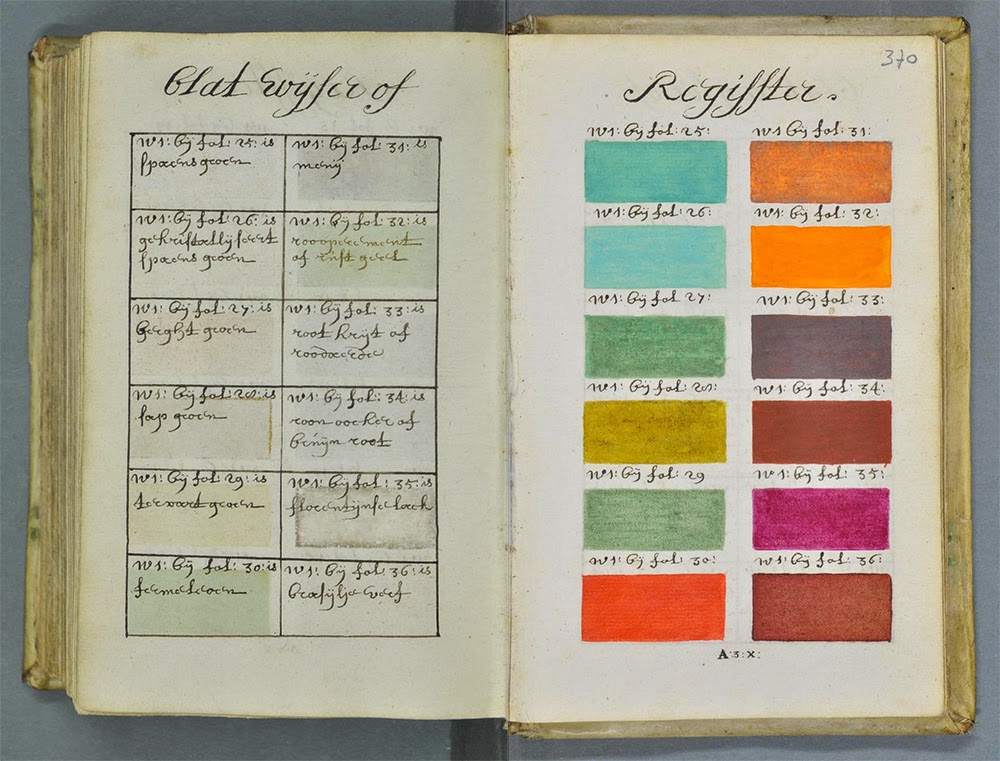 blat wijser of
w1: bij fol: 25: is
spaens groen
w1: bij fol: 31: is
menij
w1: bij fol: 26: is
gekristallijseert
spaens groen
w1: bij fol: 32: is
roooperement
of rust geel
w1: bij fol: 27: is
berght groen
w1: bij fol: 33: is
root krijt of
roodaerde
w1: bij fol: 28: is
sap groen
w1: bij fol: 34: is
roon oocker of
bruijn root
w1: bij fol: 29: is
terwart groen
w1: bij fol: 35: is
florentijnse lack
w1: bij fol: 30: is
fermeloen
w1: bij fol: 36: is
brasijlje verf
370
Regisster.
w1: bij fol: 25:
w1: bij fol: 31:
w1: bij fol: 26:
w1: bij fol: 32:
w1: bij fol: 27:
w1: bij fol: 33:
w1: bij fol: 28:
w1: bij fol: 34:
w1: bij fol: 29
w1: bij fol: 35:
w1: bij fol: 30:
w1: bij fol: 36:
A:3:X: